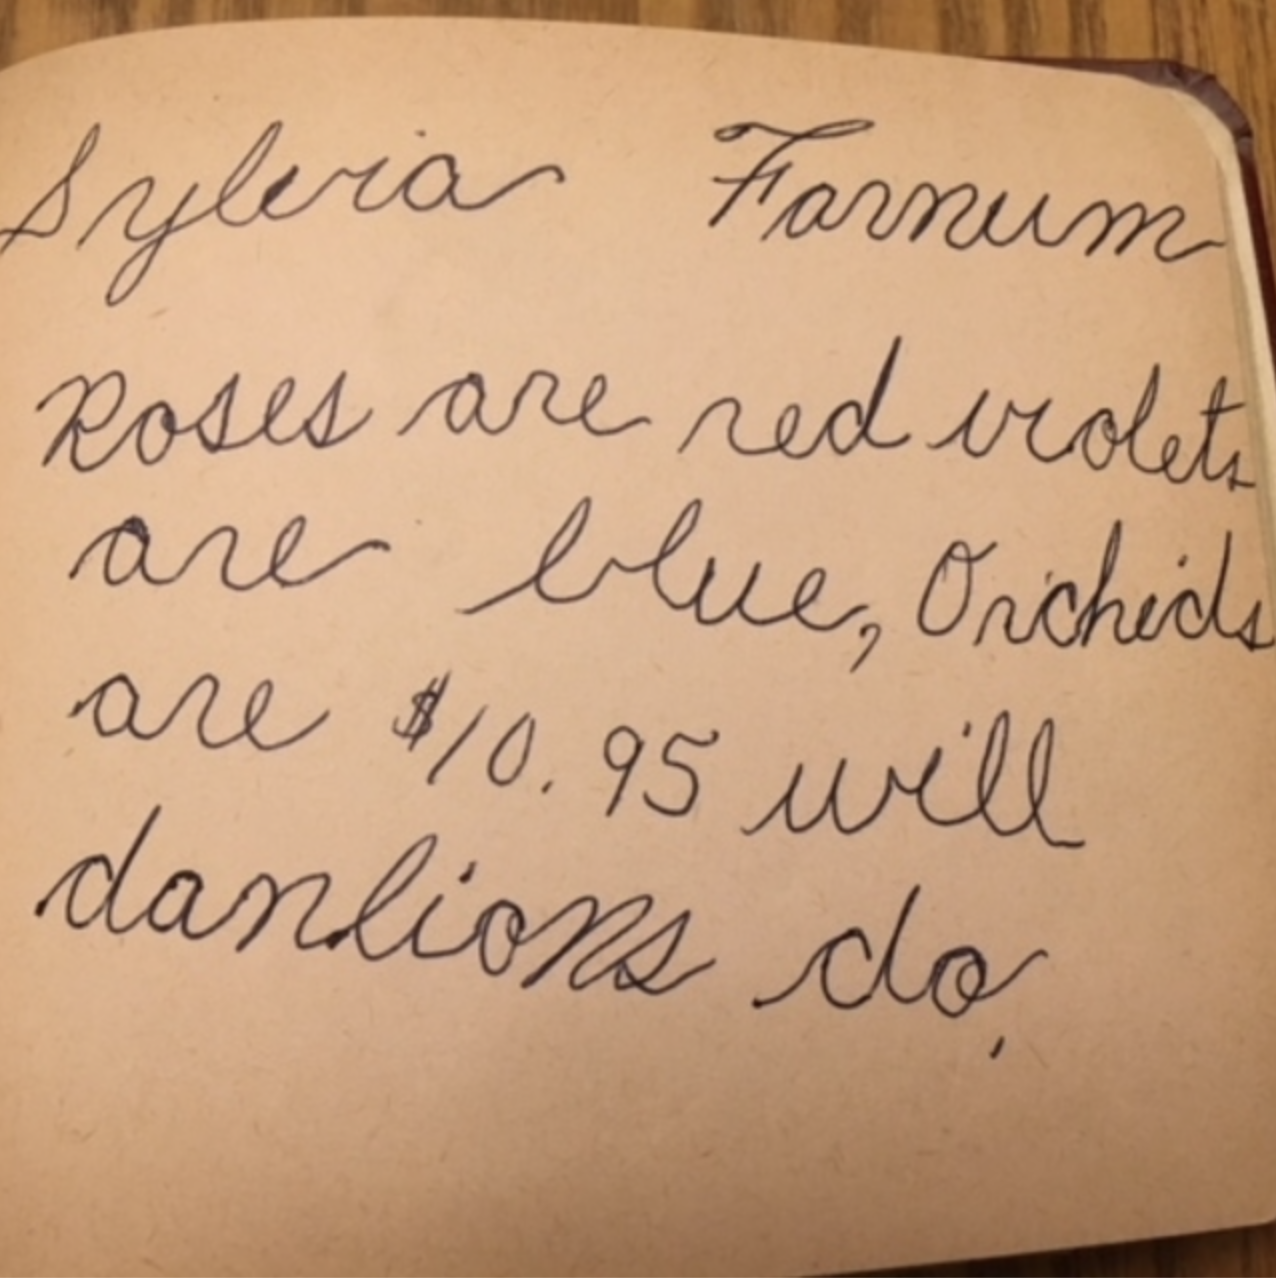 Sylvia Farnum
Roses are red violets
are blue, Orchids
are $10.95 will
danlions do,